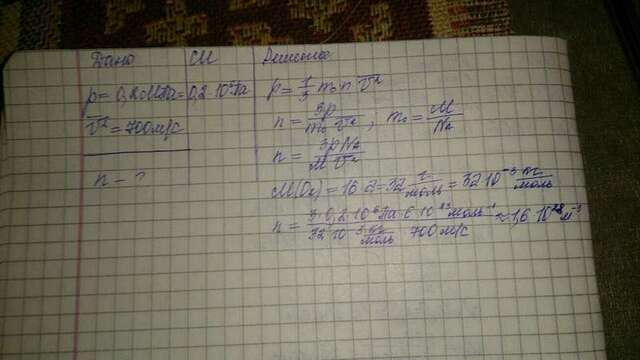 Дано СИ Решение
p = 0,2 МПа = 0,2·10⁶Па p = 1/3 m₀ n v̅²
v̅² = 700 м/с n = 3p / m₀ v̅² , m₀ = M / Nₐ
n = 3pNₐ / M v̅²
n - ?
M(O₂) = 16·2 = 32 г/моль = 32·10⁻³ кг/моль
n = 3·0,2·10⁶Па·6·10²³моль⁻¹ / 32·10⁻³ кг/моль · 700м/с ≈ 1,6·10²⁸м⁻³